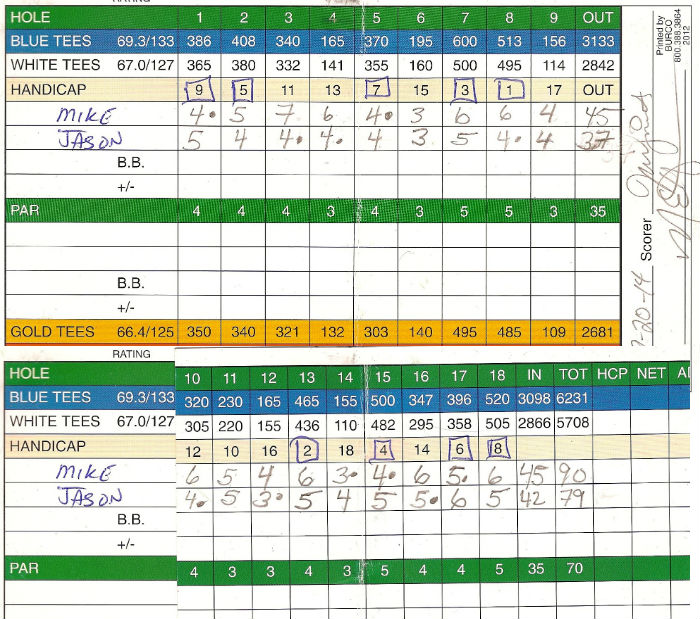 RATING
HOLE 1 2 3 4 5 6 7 8 9 OUT
BLUE TEES 69.3/133 386 408 340 165 370 195 600 513 156 3133
WHITE TEES 67.0/127 365 380 332 141 355 160 500 495 114 2842
HANDICAP 9 5 11 13 7 15 3 1 17 OUT
MIKE 4• 5 7 6 4• 3 6 6 4 45
JASON 5 4 4• 4• 4 3 5 4• 4 37
B.B.
+/-
PAR 4 4 4 3 4 3 5 5 3 35
B.B.
+/-
GOLD TEES 66.4/125 350 340 321 132 303 140 495 485 109 2681
Printed by
BURCO
800.385.3864
2012
Scorer
-20-14
RATING
HOLE 10 11 12 13 14 15 16 17 18 IN TOT HCP NET
BLUE TEES 69.3/133 320 230 165 465 155 500 347 396 520 3098 6231
WHITE TEES 67.0/127 305 220 155 436 110 482 295 358 505 2866 5708
HANDICAP 12 10 16 2 18 4 14 6 8
MIKE 6 5 4 6 3• 4• 6 5• 6 45 90
JASON 4• 5 3• 5 4 5 5• 6 5 42 79
B.B.
+/-
PAR 4 3 3 4 3 5 4 4 5 35 70